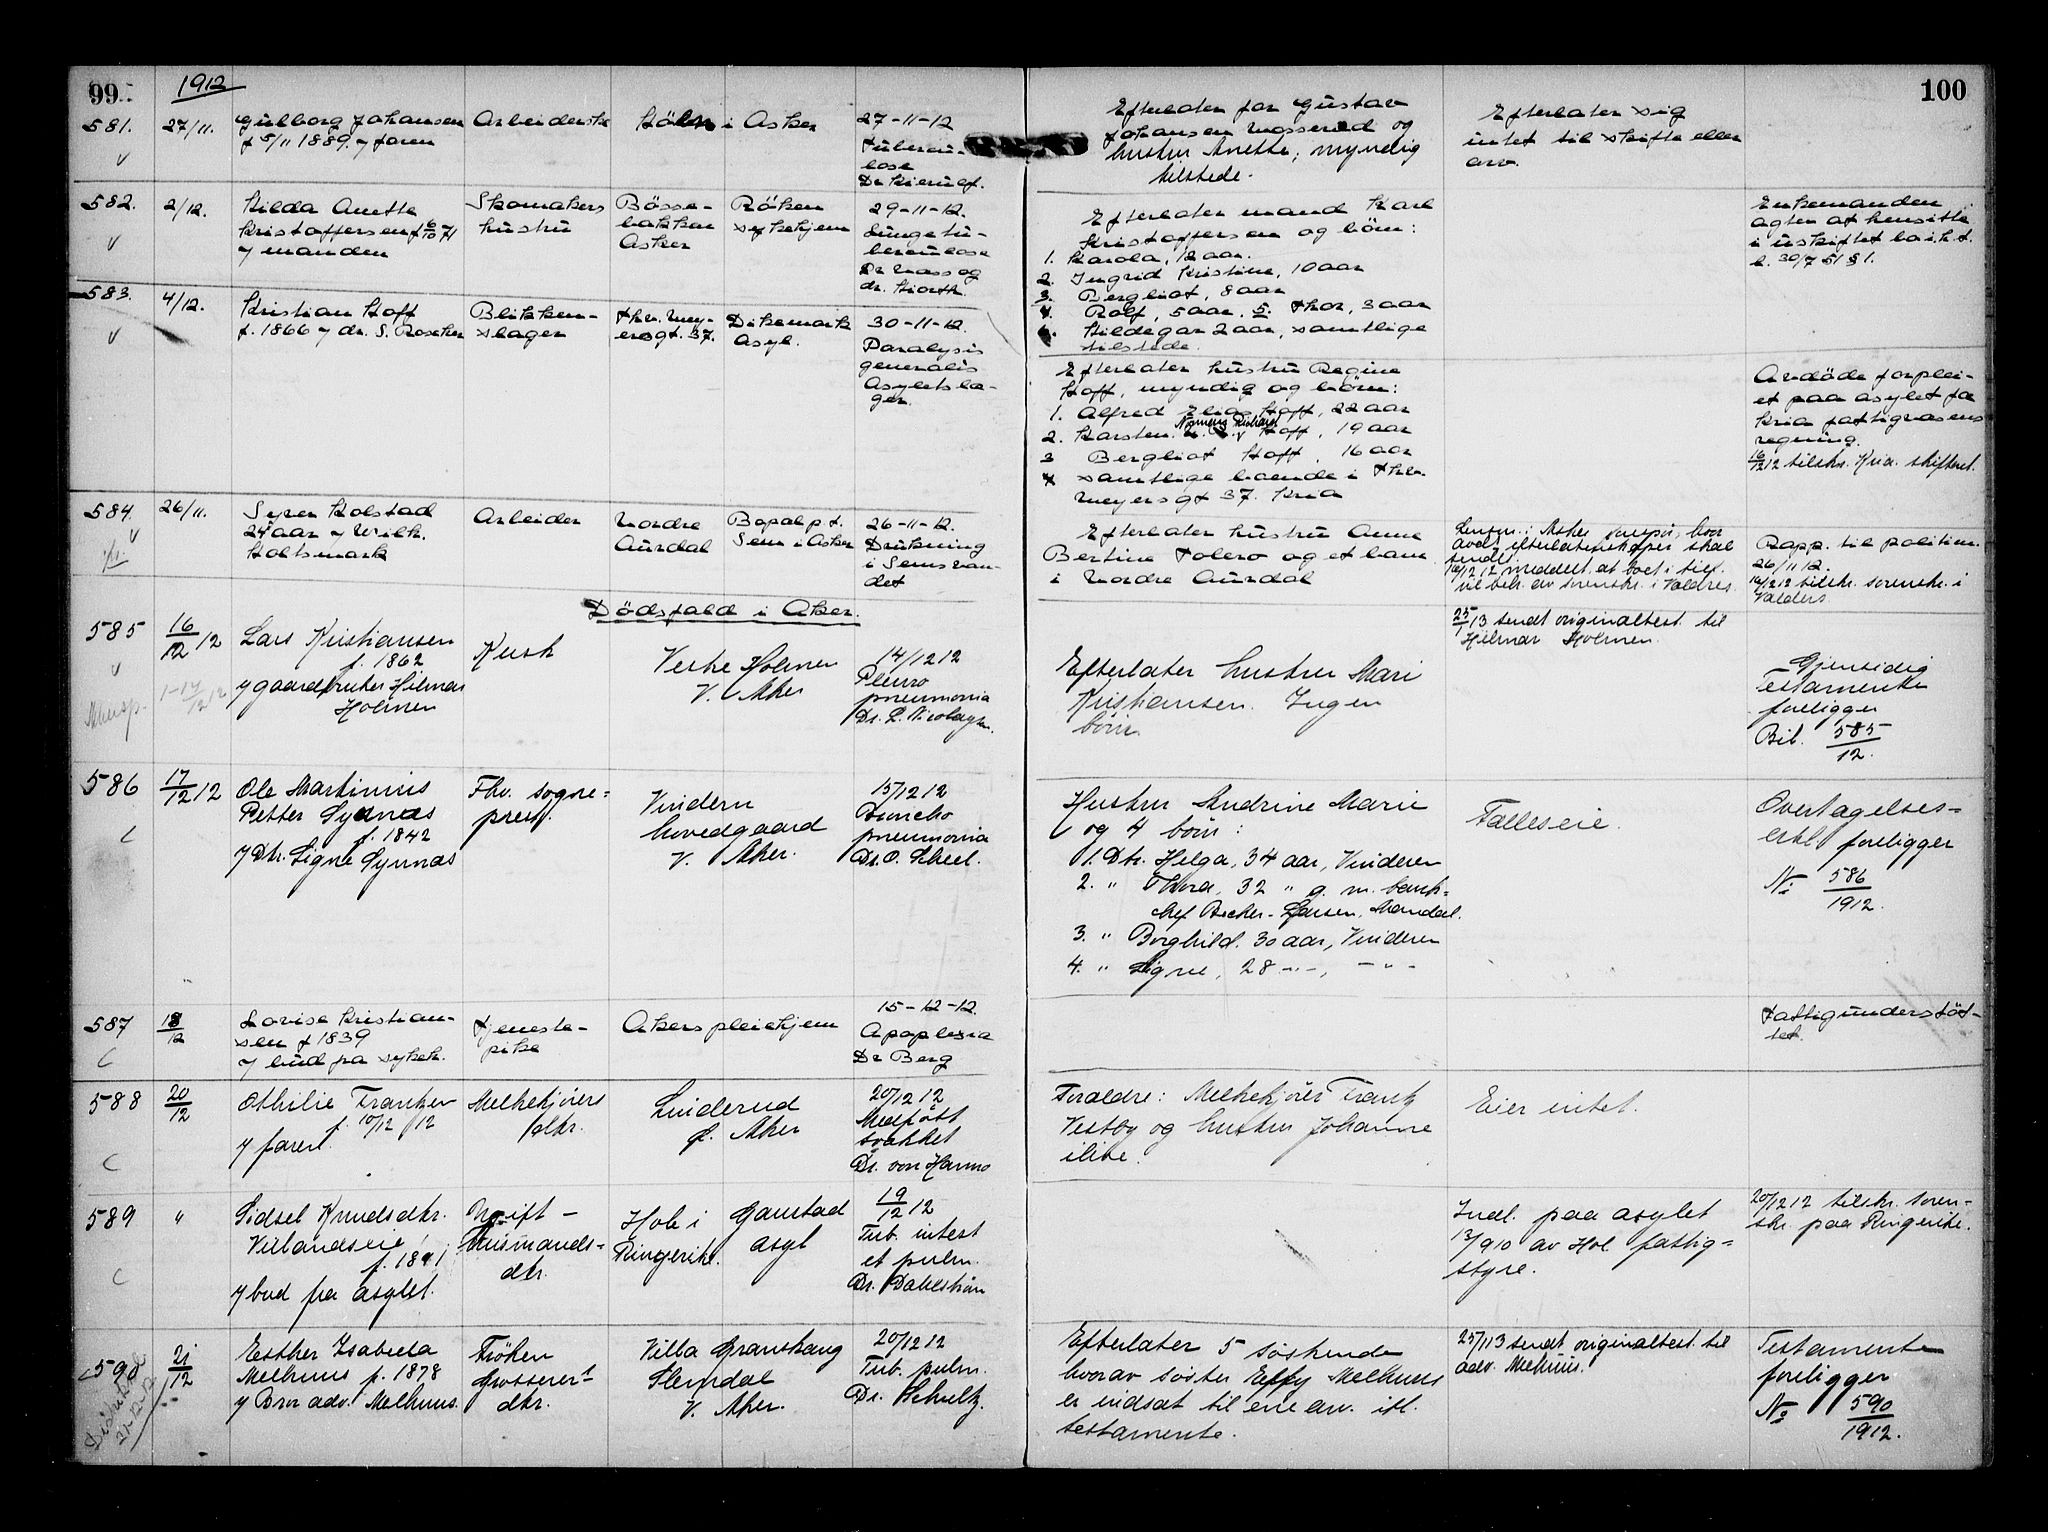 99
1912
100
581.
27/11.
Gulborg Johansen
f 5/11 1889. y faren
Arbeiderske
i Asker
27-11-12
Tubercu-
lose
Dr Kierulf.
Efterlater far Gustav
Johansen og
hustru Anette, myndig
tilstede.
Efterlater sig
intet til skifte eller
arv.
582.
2/12.
Hilda Anette
Kristoffersen f 6/10 71
y manden
Skomakers
hustru
Bösse-
bakken
Asker
Röken
sykehjem
29-11-12.
Lungetu-
berculose
Dr Wass og
dr. Hiorth.
Efterlater mand Karl
Kristoffersen og börn:
1. Karola, 12 aar.
2. Ingrid Kristine, 10 aar
3. Bergliot, 8 aar
4. Rolf, 5 aar. 5. Thor, 3 aar
6. Hildegar 2 aar, samtlige
tilstede.
Enkemanden
agter at hensitte
i uskiftet bo i.h.t.
l. 30/7 51 § 1.
583.
4/12.
Kristian Hoff
f. 1866 y dr. S. Roscher
Blikken-
slager
Thv. Mey-
ersgt. 37.
Dikemark
Asyl.
30-11-12.
Paralysis
generalis
Asylets læ-
ger.
Efterlater hustru Regine
Hoff, myndig og börn:
1. Alfred Elias Hoff, 22 aar
2. Karsten Hoff, 19 aar
3 Bergliot Hoff, 16 aar
4 samtlige boende i Thv.
Meyersgt 37. Kria
Avdöde forplei-
et paa asylet for
Kria fattigvæsens
regning.
16/12 12 tilskr. Kria. skifteret.
584.
26/11.
Syver Kolstad
24 aar y Wilh.
Holtsmark
Arbeider
Nordre
Aurdal
Bopæl p.t.
Sem i Asker
26-11-12.
Drukning
i Semsvan-
det
Efterlater hustru Anne
Bertine Tolero og et barn
i Nordre Aurdal
Lensm. i Asker hvor
avdödes efterladenskaper skal
sendes
16/12 12 meddelt at boet i tilf.
vil beh. av sorenskr. i Valdres.
Rapp. til politim.
26/11 12.
16/12 12 tilskr. sorenskr. i
Valders.
Dödsfald i Aker.
585
16/12 12
Lars Kristiansen
f. 1862
y gaardbruker Hilmar
Holmen
Kusk
Vestre Holmen
V. Aker
14/12 12
Pleuro
pneumonia
Dr. L. Nicolaysen.
Efterlater hustru Mari
Kristiansen. Ingen
börn.
25/1 13 sendt originaltest. til
Hilmar Holmen.
Gjensidig
Testamente
foreligger
Bil. 585/12.
586
17/12 12
Ole Martinius
Petter Synnæs
f. 1842
y Dtr. Signe Synnæs
Fhv. sogne=
prest.
Vindern
hovedgaard
V. Aker.
15/12 12
Broncho
pneumonia
Dr. O. Scheel.
Hustru Andrine Marie
og 4 börn:
1. Dtr. Helga, 34 aar, Vinderen
2. " Thora, 32 " g. m. bank=
chef Becker-Larsen, Mandal.
3. " Borghild. 30 aar, Vinderen
4. " Signe, 28 -"-, -"-
Fælleseie.
Overtagelses=
erkl. foreligger
No 586/1912.
587
18/12
Lovise Kristian-
sen f 1839
y bud fra sykeh.
Tjeneste-
pike
Akers pleiehjem
15-12-12.
Apoplexia
Dr Berg
Fattigunderstöt-
tet.
588
20/12
Othilie Frantzen
f. 10/12 12
y faren.
Melkekjörers
dtr.
Linderud
Ö. Aker
20/12 12
Medfödt
svakhet
Dr. von Hanno
Foreldre: Melkekjörer Frantz
Vestby og hustru Johanne
ilive.
Eier intet.
589
"
Sidsel Knudsdtr.
Villandseie
f. 1841
y bud fra asylet.
Ugift -
husmands=
dtr.
Hole i
Ringerike.
Gaustad
asyl
19/12 12
Tub. intest
et pulm.
Dr. Dahlström
Indl. paa asylet
13/9 10 av Hol fattig=
styre.
20/12 12 tilskr. soren-
skr. paa Ringerike.
590
21/12
Esther Isabella
Melhuus f. 1878
y Bror adv. Melhuus.
Fröken
Grosserer
dtr.
Villa Granshaug
Slemdal
V. Aker.
20/12 12
Tub. pulm.
Dr. Schultz.
Efterlater 5 söskende
hvorav söster Effy Melhuus
er indsat til enearv. ifl.
testamente.
25/1 13 sendt originaltest. til
adv. Melhuus.
Testamente
foreligger
No 590/1912.